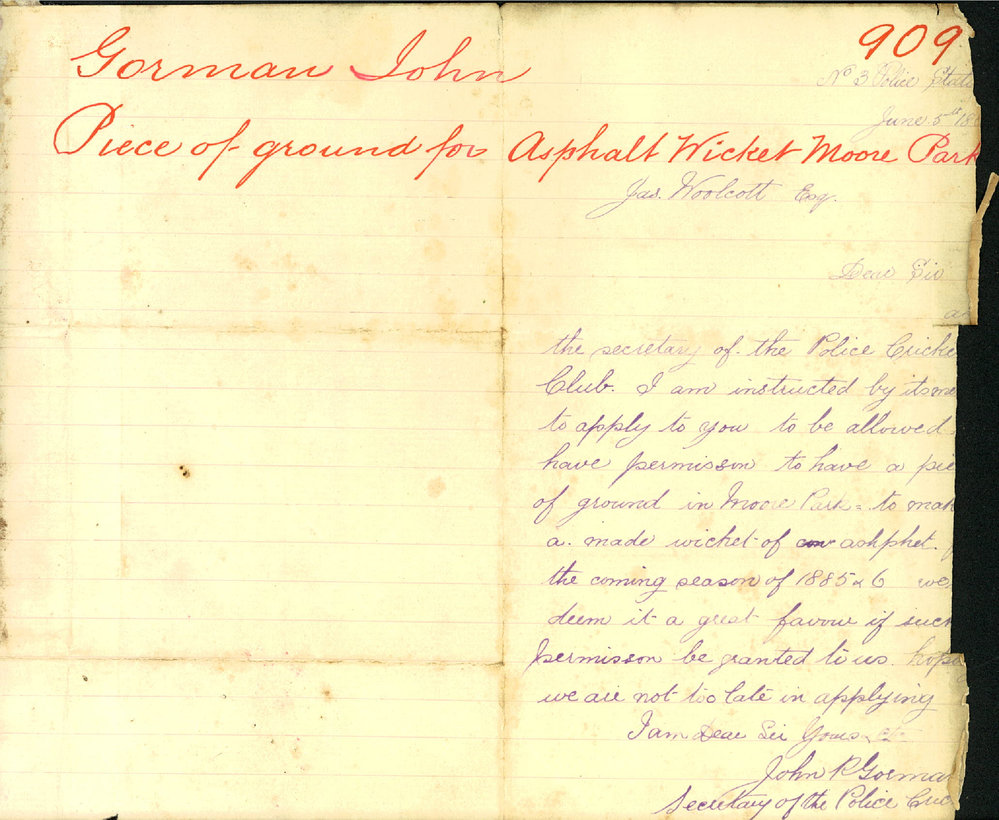 909
Gorman John
No 3 Police Street
June 5th 18
Piece of ground for Asphalt Wicket Moore Park
Jas. Woolcott Esq.
Dear Sir
as
the secretary of the Police Cricke
Club. I am instructed by its me
to apply to you to be allowed
have permisson to have a pie
of ground in Moore Park = to mak
a made wicket of ashphet. f
the coming season of 1885 & 6 we
deem it a great favour if such
permisson be granted to us. hopin
we are not too late in applying
I am Dear Sir Yours &c
John R Gorma
Secretary of the Police Cric